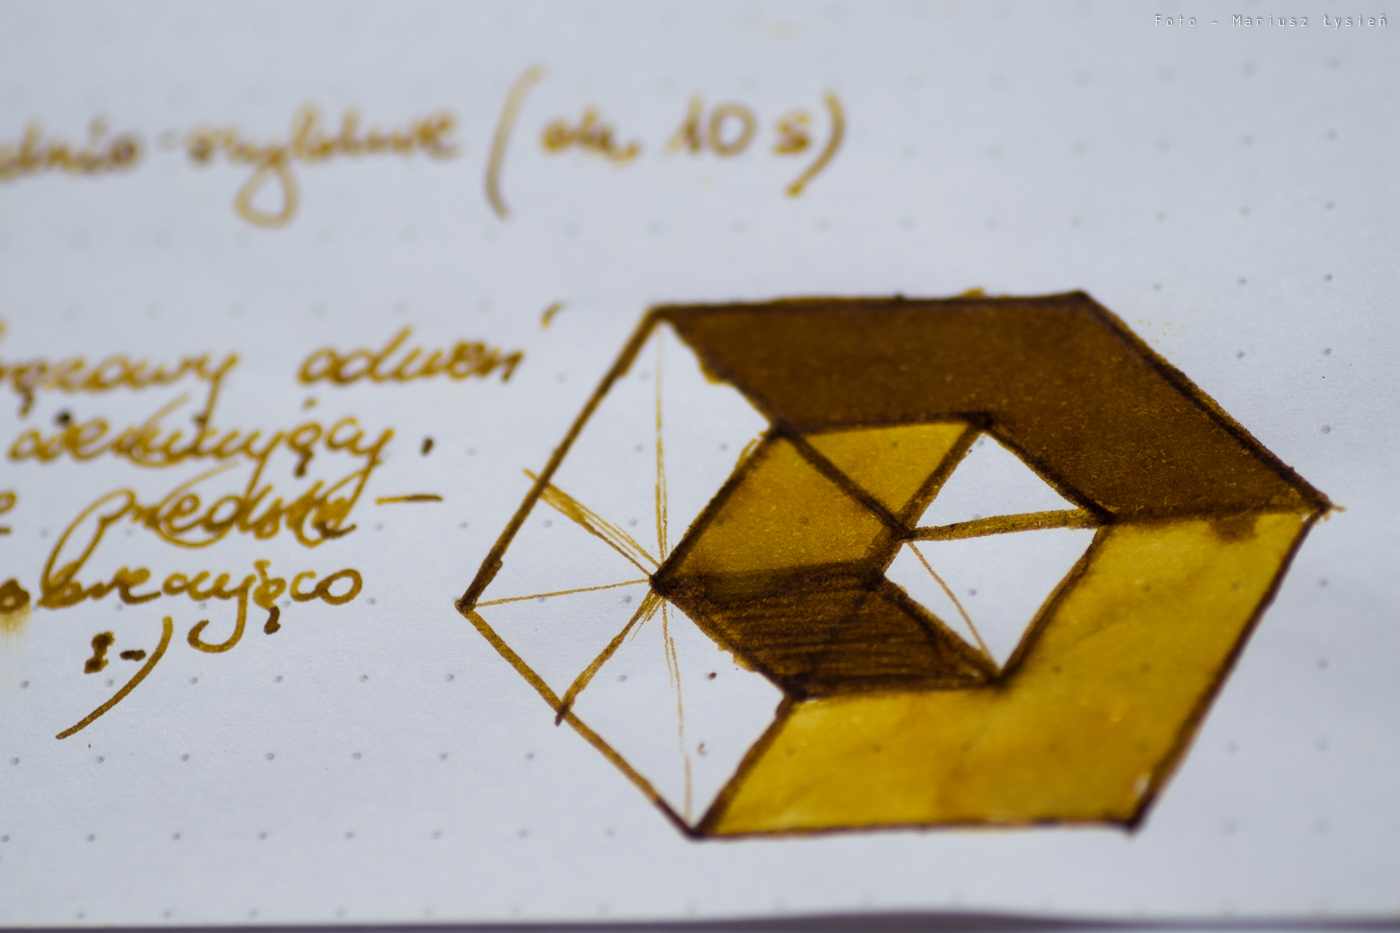 Foto - Mariusz Łysień
średnio szybkie (ok. 10 s)
brązowy odcień
cieniujący.
przedsta-
obiecująco
:-)